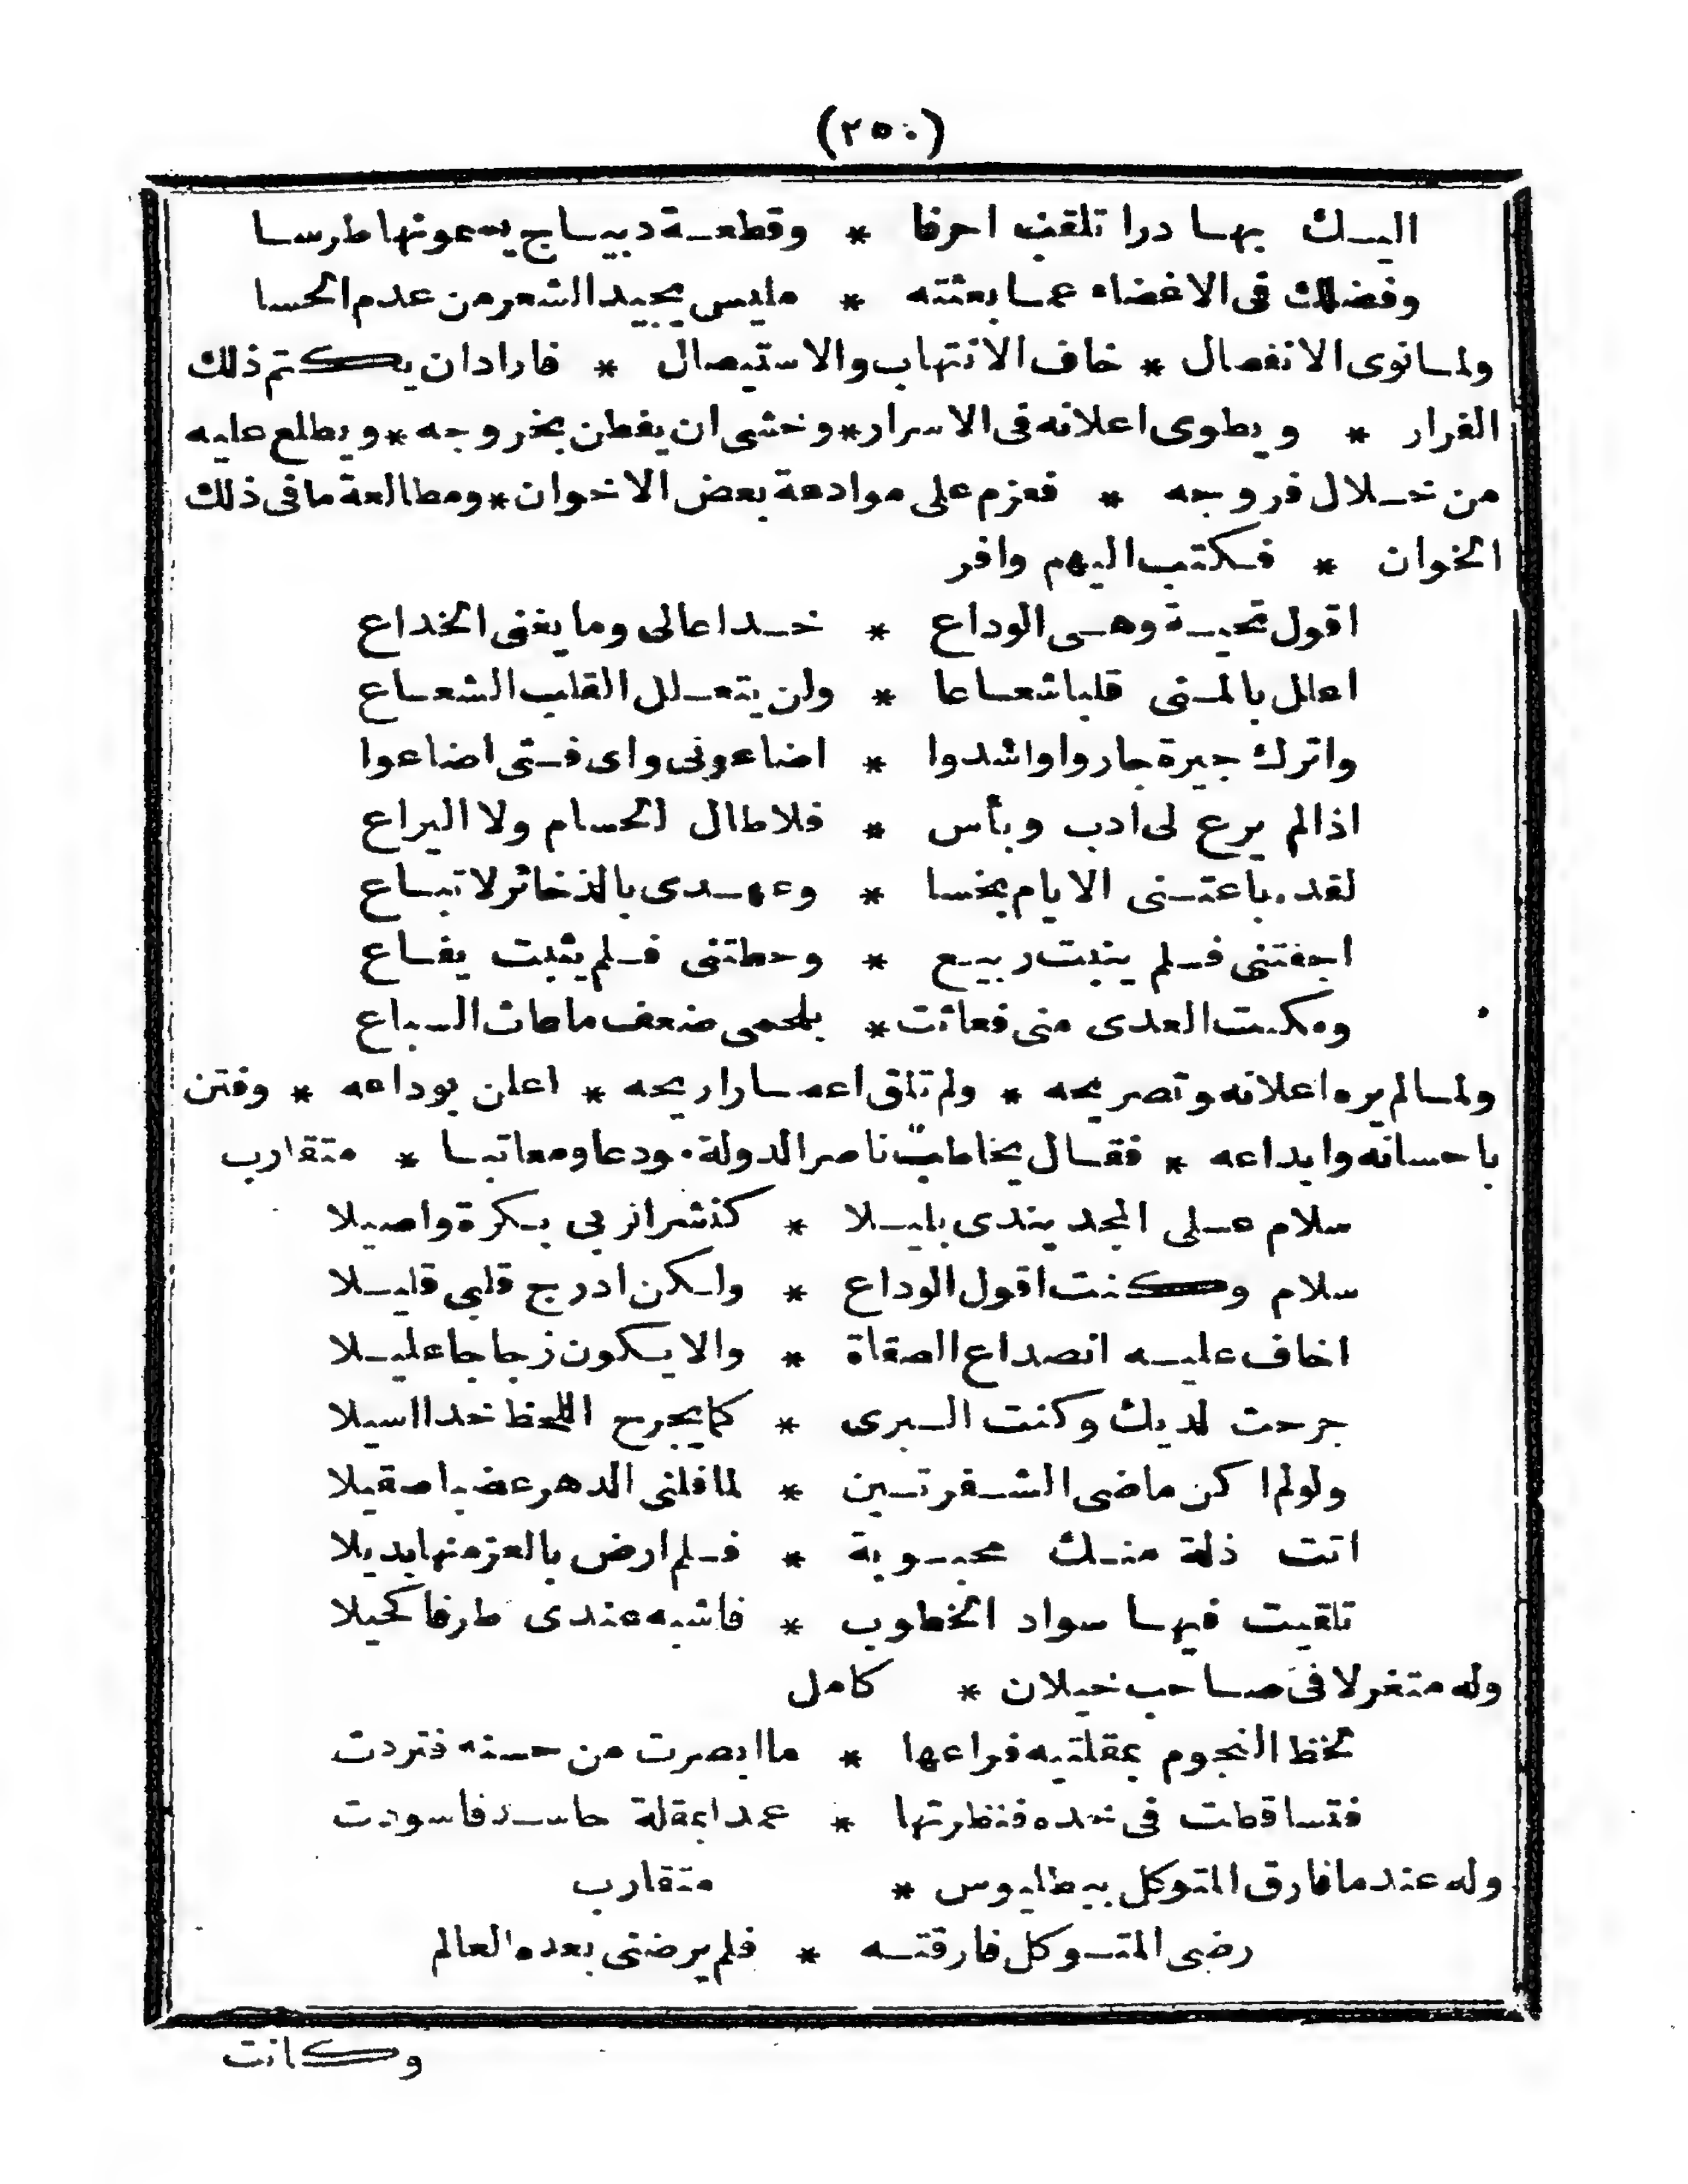 (٢٥٠)
اليك بها درا تلقب احرفا * وقطعة ديباج يسمونها طرسا
وفضلك فى الاغضاء عما بعثته * فليس يجيد الشعر من عدم الحسا
ولما نوى الانفصال * خاف الانتهاب والاستيصال * فاراد ان يكتم ذلك
الفرار * ويطوى اعلانه فى الاسرار * وخشى ان يفطن بخروجه * ويطلع عليه
من خلال فروجه * فعزم على موادعة بعض الاخوان * ومطالعة ما فى ذلك
الخوان * فكتب اليهم وافر
اقول تحية وهى الوداع * خداعا لى وما يغنى الخداع
اعلل بالمنى قلبا شعاعا * ولن يتعلل القلب الشعاع
واترك جيرة جاروا واشدوا * اضاعونى واى فتى اضاعوا
اذا لم يرع لى ادب وبأس * فلا طال الحسام ولا اليراع
لقد باعتنى الايام بخسا * وعهدى بالذخائر لا تباع
اجفتنى فلم ينبت ربيع * وحطتنى فلم يثبت يفاع
ومكنت العدى منى فعاثت * بلحمى ضعف ما عاث السباع
ولما لم يره اعلانه وتصريحه * ولم تلق اعصارا ريحه * اعلن بوداعه * وفتن
باحسانه وابداعه * فقال يخاطب ناصر الدولة مودعا ومعاتبا * متقارب
سلام على المجد يندى بليلا * كنشر الربى بكرة واصيلا
سلام وكنت اقول الوداع * ولكن ادرج قلبى قليلا
اخاف عليه انصداع الصفاة * والا يكون زجاجا عليلا
جرحت لديك وكنت البرى * كما يجرح اللحظ خدا اسيلا
ولو لم اكن ماضى الشفرتين * لما فلنى الدهر عضبا صقيلا
اتت ذلة منك محبوبة * فلم ارض بالعز منها بديلا
تلقيت فيها سواد الخطوب * فاشبه عندى طرفا كحيلا
وله متغزلا فى صاحب خيلان * كامل
لحظ النجوم بمقلتيه فراعها * ما ابصرت من حسنه فتردت
فتساقطت فى خده فنظرتها * عمدا بمقلة حاسد فاسودت
وله عند ما فارق المتوكل ببطليوس * متقارب
رضى المتوكل فارقته * فلم يرضنى بعده العالم
وكانت